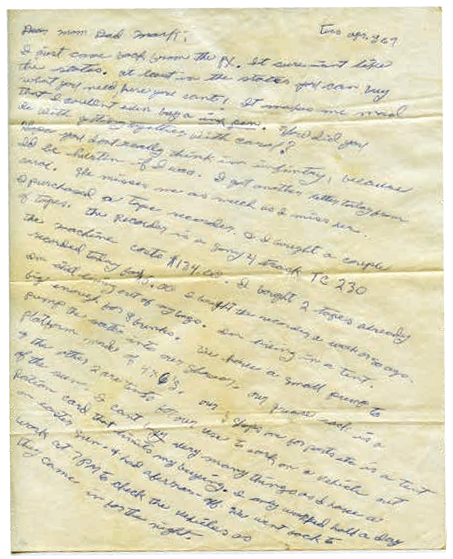 Tues apr. 8 69
Dear Mom Dad Mark;
I just came back from the PX. It sure isn't like
the states. at least in the states you can buy
what you need here you cant! It makes me mad
that I couldnt even buy a ink pen. How did you
do with getting together with carol?
Hope you dont really think im in fantry, because
Id be hurtin if I was. I got another letter today from
carol. She misses me as much as I miss her.
I purchased a tape recorder, & I bought a couple
of tapes. the Recorder is a Sony 4 track TC 230
the machine costs $134.00. I bought 2 tapes already
recorded today for. I bought the recorder a week or so ago.
im still living out of my bags. Im living in a tent.
big enough for 8 bunks. We have a small pump to
pump the water into our Showers, our grease rack is a
platform made of 4X6s, our shops are for parts etc is a tent
& the other 2 are tents for our use to work on a vehicle out
of the sun. I cant buy very many things as I have a
Ration card that limits my buying. I only worked half a day
on easter
work at 7PM to check the vehicles as
they came in for the night.